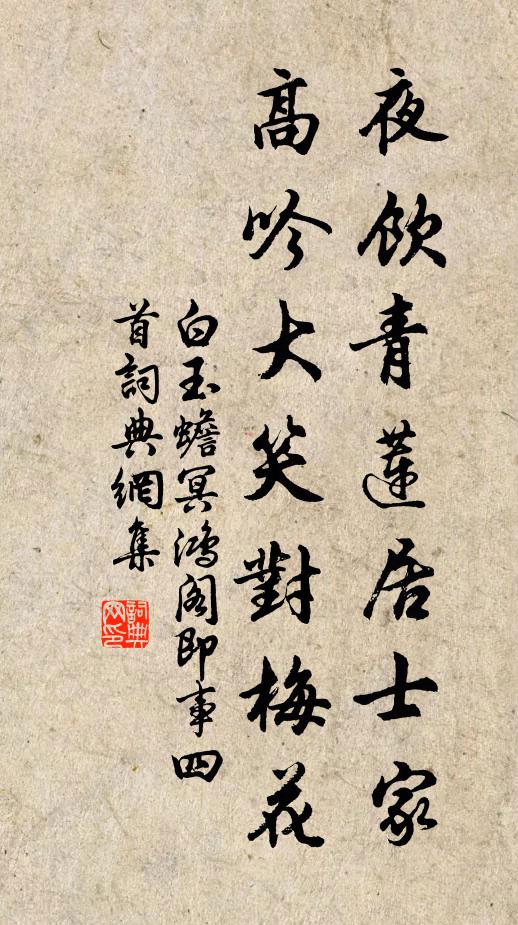 夜飲青蓮居士家
高吟大笑對梅花
白玉蟾冥鴻閣即事四
首詞典網集
詞典
网印